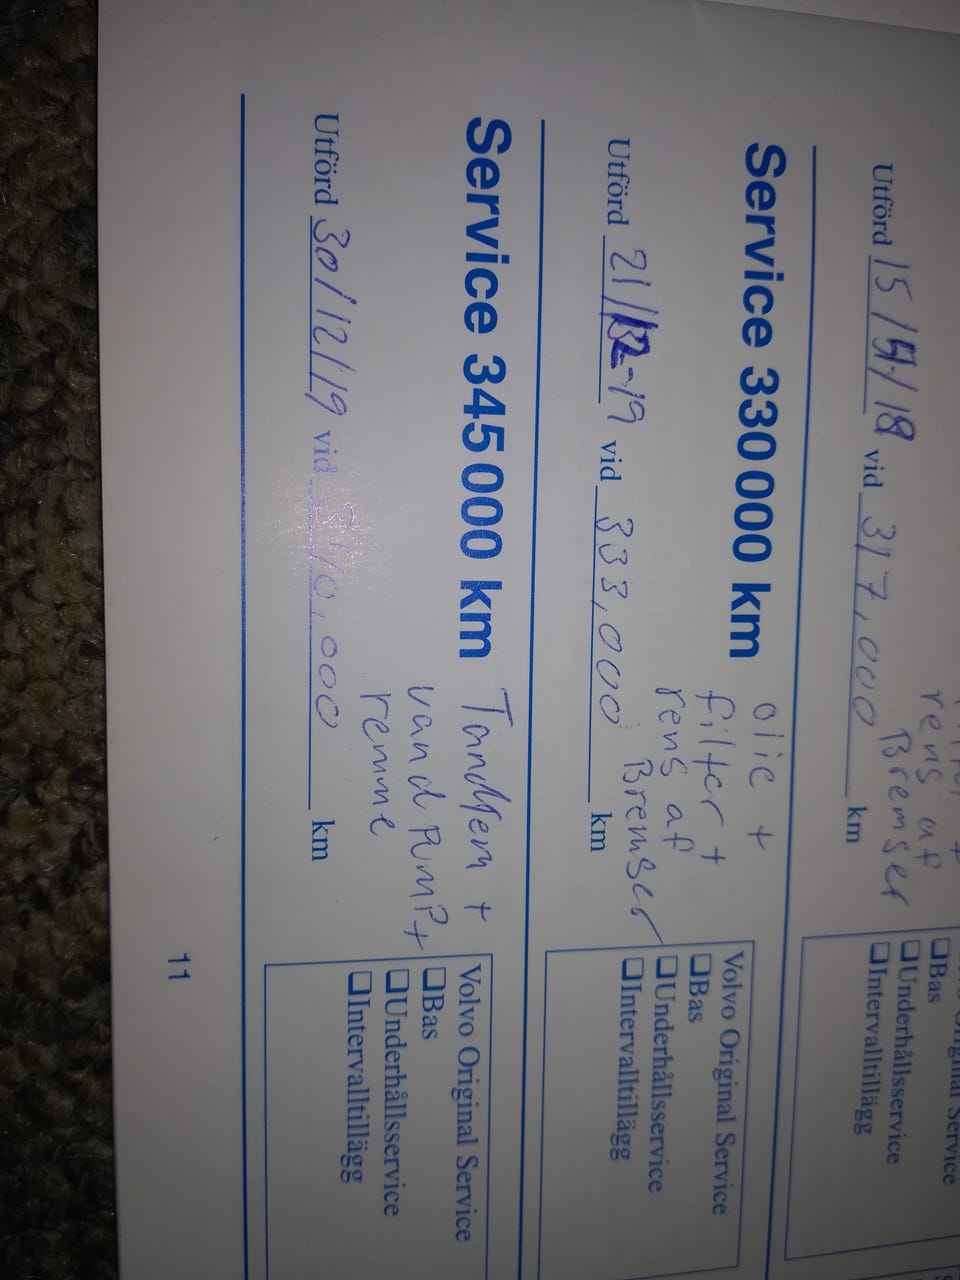 rens af
Bremser
Utförd 15/ /18 vid 317,000 km
Original Service
❏Bas
❏Underhållsservice
❏Intervalltillägg
Service 330 000 km
olie +
filter +
rens af
Bremser
Utförd 21/12-19 vid 333,000 km
Volvo Original Service
❏Bas
❏Underhållsservice
❏Intervalltillägg
Service 345 000 km
Tandrem +
vand PUMP +
remme
Utförd 30/12/19 vid 340,000 km
Volvo Original Service
❏Bas
❏Underhållsservice
❏Intervalltillägg
11